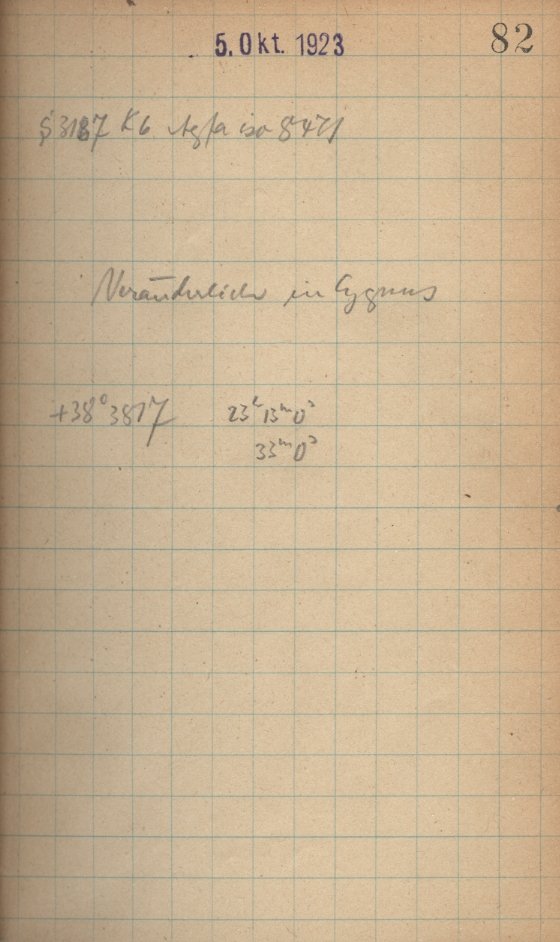 5. Okt. 1923
82
S 3187 K6 Agfa iso 8471
Veränderliche in Cygnus
+38° 3817 23ʰ 13ᵐ 0ˢ
33ᵐ 0ˢ